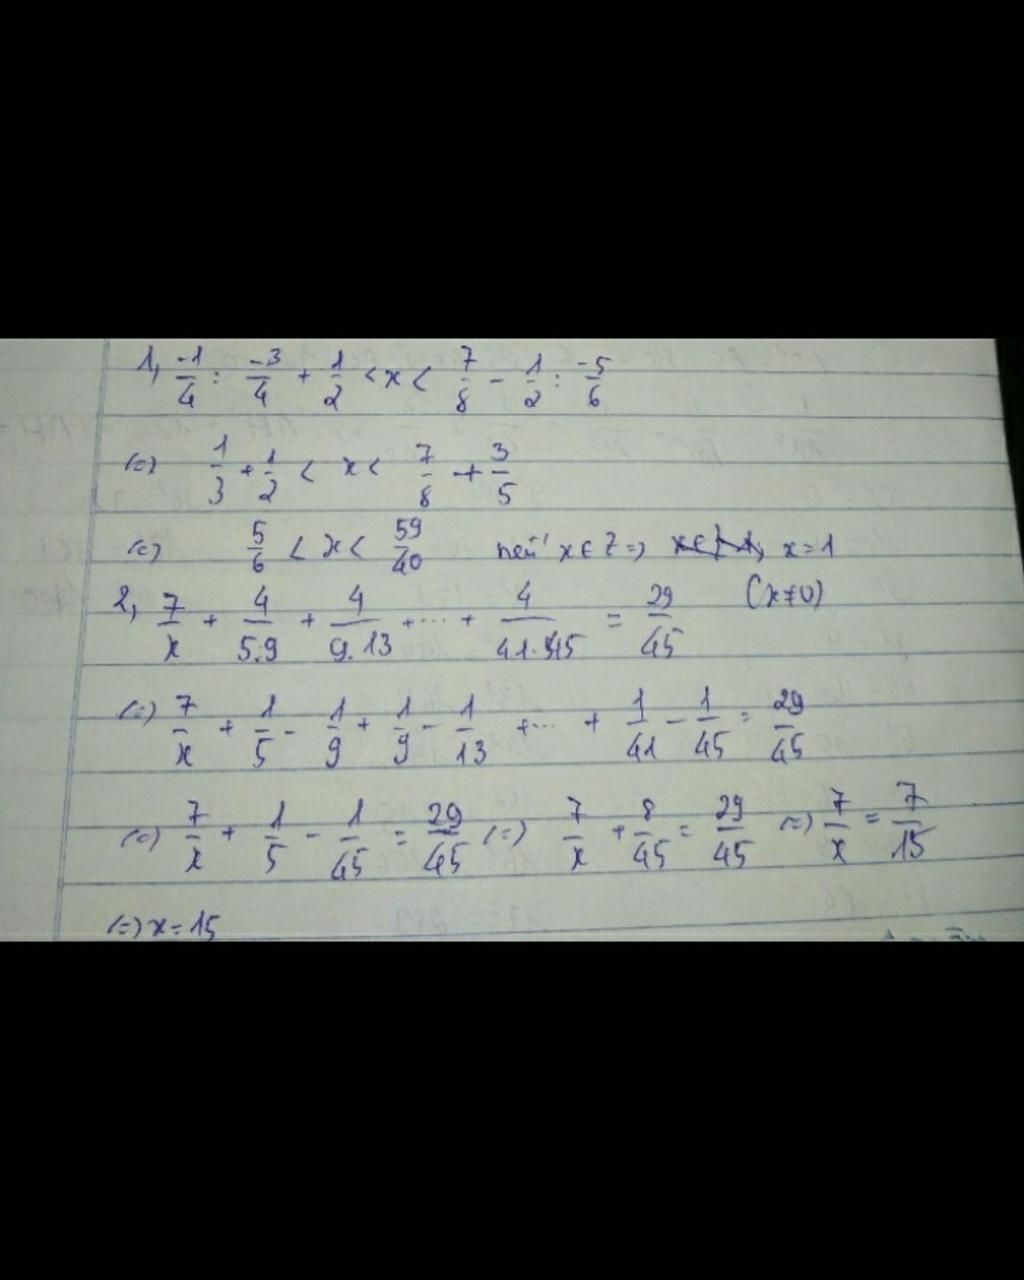 1, -1/4 : -3/4 + 1/2 < x < 7/8 - 1/2 : -5/6
(=) 1/3 + 1/2 < x < 7/8 + 3/5
(=) 5/6 < x < 59/40 nếu x ∈ Z => x = 1
2, 7/x + 4/5.9 + 4/9.13 + ... + 4/41.45 = 29/45 (x≠0)
(=) 7/x + 1/5 - 1/9 + 1/9 - 1/13 + ... + 1/41 - 1/45 = 29/45
(=) 7/x + 1/5 - 1/45 = 29/45 (=) 7/x + 8/45 = 29/45 (=) 7/x = 7/15
(=) x = 15